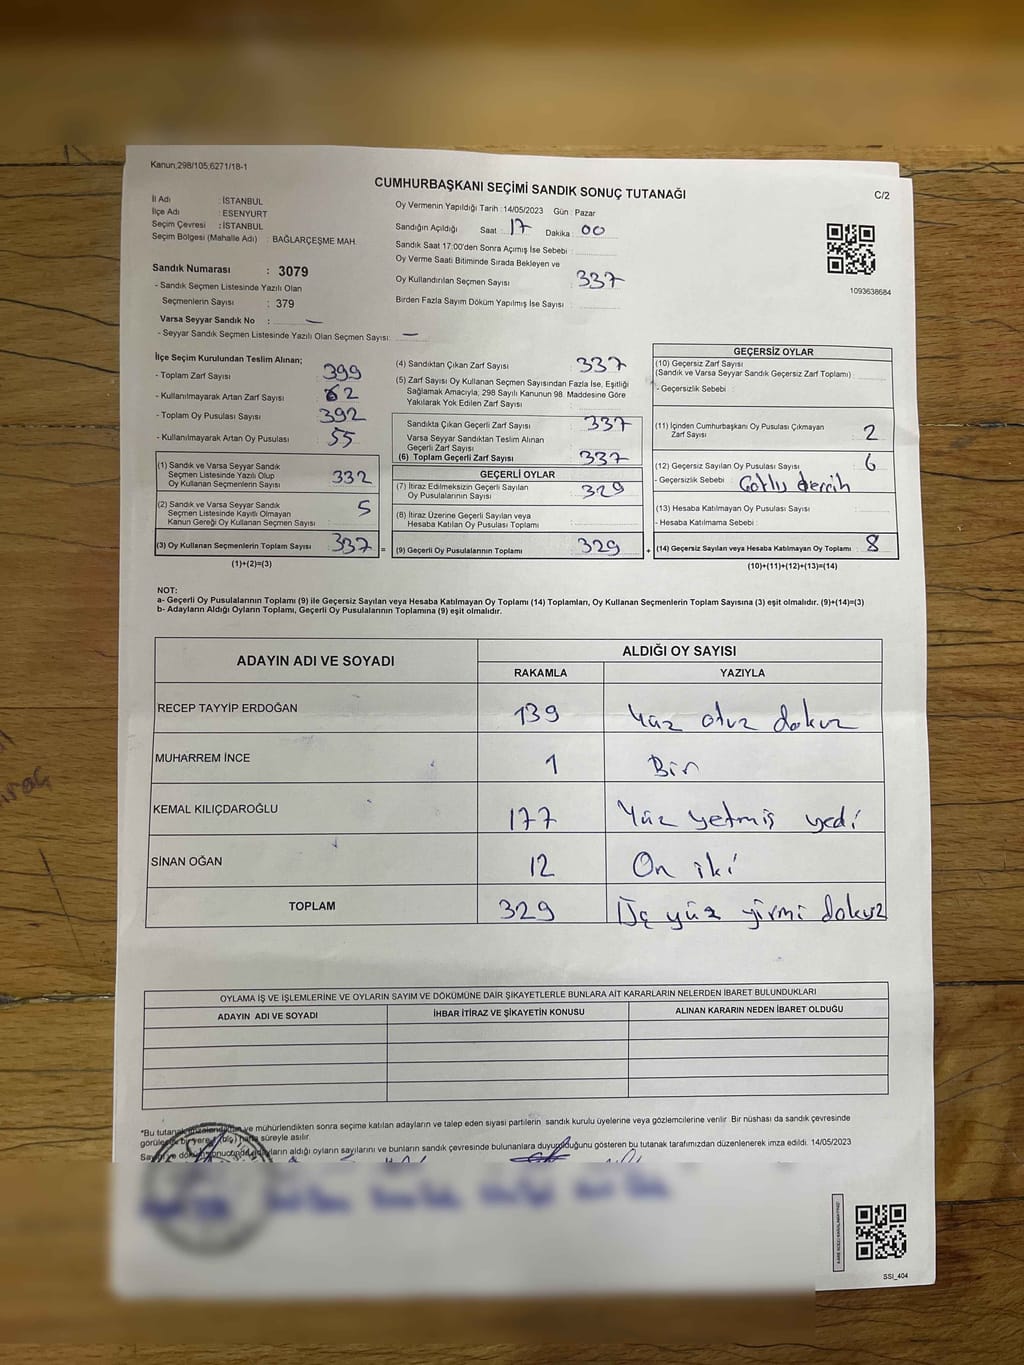 Kanun;298/105;6271/18-1
CUMHURBAŞKANI SEÇİMİ SANDIK SONUÇ TUTANAĞI
C/2
İl Adı : İSTANBUL
İlçe Adı : ESENYURT
Seçim Çevresi : İSTANBUL
Seçim Bölgesi (Mahalle Adı) : BAĞLARÇEŞME MAH.
Sandık Numarası : 3079
- Sandık Seçmen Listesinde Yazılı Olan
Seçmenlerin Sayısı : 379
Varsa Seyyar Sandık No : —
- Seyyar Sandık Seçmen Listesinde Yazılı Olan Seçmen Sayısı: —
Oy Vermenin Yapıldığı Tarih : 14/05/2023 Gün : Pazar
Sandığın Açıldığı Saat : 17 Dakika : 00
Sandık Saat 17:00'den Sonra Açımış İse Sebebi :
Oy Verme Saati Bitiminde Sırada Bekleyen ve
Oy Kullandırılan Seçmen Sayısı : 337
Birden Fazla Sayım Döküm Yapılmış İse Sayısı :
1093638684
İlçe Seçim Kurulundan Teslim Alınan;
- Toplam Zarf Sayısı 399
- Kullanılmayarak Artan Zarf Sayısı 62
- Toplam Oy Pusulası Sayısı 392
- Kullanılmayarak Artan Oy Pusulası 55
(1) Sandık ve Varsa Seyyar Sandık
Seçmen Listesinde Yazılı Olup
Oy Kullanan Seçmenlerin Sayısı 332
(2) Sandık ve Varsa Seyyar Sandık
Seçmen Listesinde Kayıtlı Olmayan
Kanun Gereği Oy Kullanan Seçmen Sayısı : 5
(3) Oy Kullanan Seçmenlerin Toplam Sayısı 337 =
(1)+(2)=(3)
(4) Sandıktan Çıkan Zarf Sayısı 337
(5) Zarf Sayısı Oy Kullanan Seçmen Sayısından Fazla İse, Eşitliği
Sağlamak Amacıyla; 298 Sayılı Kanunun 98. Maddesine Göre
Yakılarak Yok Edilen Zarf Sayısı :
Sandıkta Çıkan Geçerli Zarf Sayısı 337
Varsa Seyyar Sandıktan Teslim Alınan
Geçerli Zarf Sayısı :
(6) Toplam Geçerli Zarf Sayısı 337
GEÇERLİ OYLAR
(7) İtiraz Edilmeksizin Geçerli Sayılan
Oy Pusulalarının Sayısı 329
(8) İtiraz Üzerine Geçerli Sayılan veya
Hesaba Katılan Oy Pusulası Toplamı
(9) Geçerli Oy Pusulalarının Toplamı 329 +
GEÇERSİZ OYLAR
(10) Geçersiz Zarf Sayısı
(Sandık ve Varsa Seyyar Sandık Geçersiz Zarf Toplamı) :
- Geçersizlik Sebebi :
(11) İçinden Cumhurbaşkanı Oy Pusulası Çıkmayan
Zarf Sayısı 2
(12) Geçersiz Sayılan Oy Pusulası Sayısı 6
- Geçersizlik Sebebi :
(13) Hesaba Katılmayan Oy Pusulası Sayısı
- Hesaba Katılmama Sebebi :
(14) Geçersiz Sayılan veya Hesaba Katılmayan Oy Toplamı 8
(10)+(11)+(12)+(13)=(14)
NOT:
a- Geçerli Oy Pusulalarının Toplamı (9) ile Geçersiz Sayılan veya Hesaba Katılmayan Oy Toplamı (14) Toplamları, Oy Kullanan Seçmenlerin Toplam Sayısına (3) eşit olmalıdır. (9)+(14)=(3)
b- Adayların Aldığı Oyların Toplamı, Geçerli Oy Pusulalarının Toplamına (9) eşit olmalıdır.
ADAYIN ADI VE SOYADI
ALDIĞI OY SAYISI
RAKAMLA YAZIYLA
RECEP TAYYİP ERDOĞAN 139 Yüz otuz dokuz
MUHARREM İNCE 1 Bir
KEMAL KILIÇDAROĞLU 177 Yüz yetmiş yedi
SİNAN OĞAN 12 On iki
TOPLAM 329 Üç yüz yirmi dokuz
OYLAMA İŞ VE İŞLEMLERİNE VE OYLARIN SAYIM VE DÖKÜMÜNE DAİR ŞİKAYETLERLE BUNLARA AİT KARARLARIN NELERDEN İBARET BULUNDUKLARI
ADAYIN ADI VE SOYADI İHBAR İTİRAZ VE ŞİKAYETİN KONUSU ALINAN KARARIN NEDEN İBARET OLDUĞU
*Bu tutanak ve mühürlendikten sonra seçime katılan adayların ve talep eden siyasi partilerin sandık kurulu üyelerine veya gözlemcilerine verilir. Bir nüshası da sandık çevresinde
bir yere süreyle asılır
adayların aldığı oyların sayılarını ve bunların sandık çevresinde bulunanlara duyurulduğunu gösteren bu tutanak tarafımızdan düzenlenerek imza edildi. 14/05/2023
SSİ_404